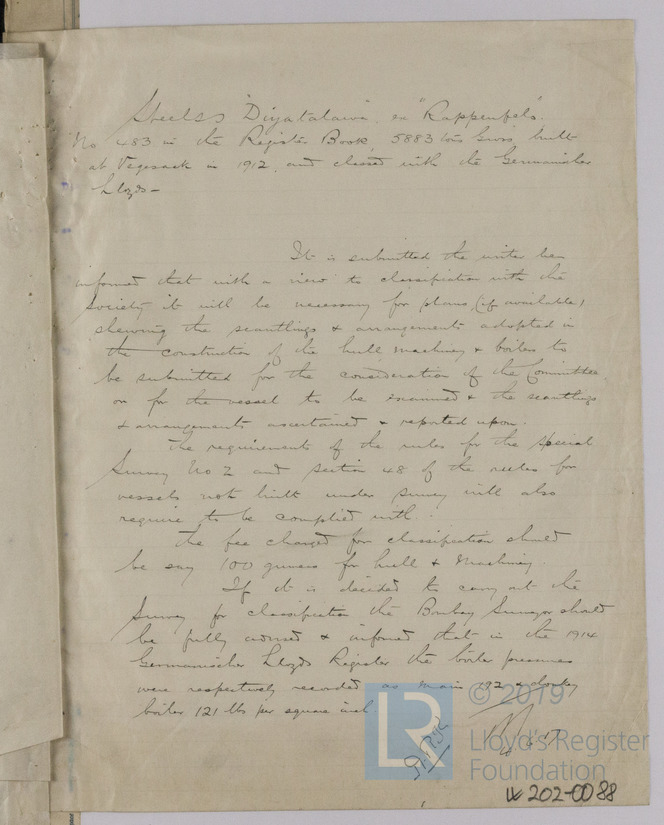 Steel SS "Diyatalawa" ex "Rappenfels".
No 483 in the Register Book, 5883 tons Gross built
at Vegesack in 1912, and classed with the Germanischer
Lloyds -
It is submitted the writer be
informed that with a view to classification with the
Society it will be necessary for plans, (if available)
shewing the scantlings & arrangements adopted in
the construction of the hull, machinery & boilers to
be submitted for the consideration of the Committee
or for the vessel to be examined & the scantlings
& arrangements ascertained & reported upon.
The requirements of the rules for the special
Survey No 2 and section 48 of the rules for
vessels not built under survey will also
require to be complied with.
The fee charged for classification should
be say 100 guineas for hull & Machinery.
If it is decided to carry out the
Survey for classification the Bombay Surveyor should
be fully advised & informed that in the 1914
Germanischer Lloyds Register the boiler pressures
were respectively recorded as main 192 & donkey
boiler 121 lbs per square inch.
LR
© 2019
Lloyd's Register
Foundation
W202-0088